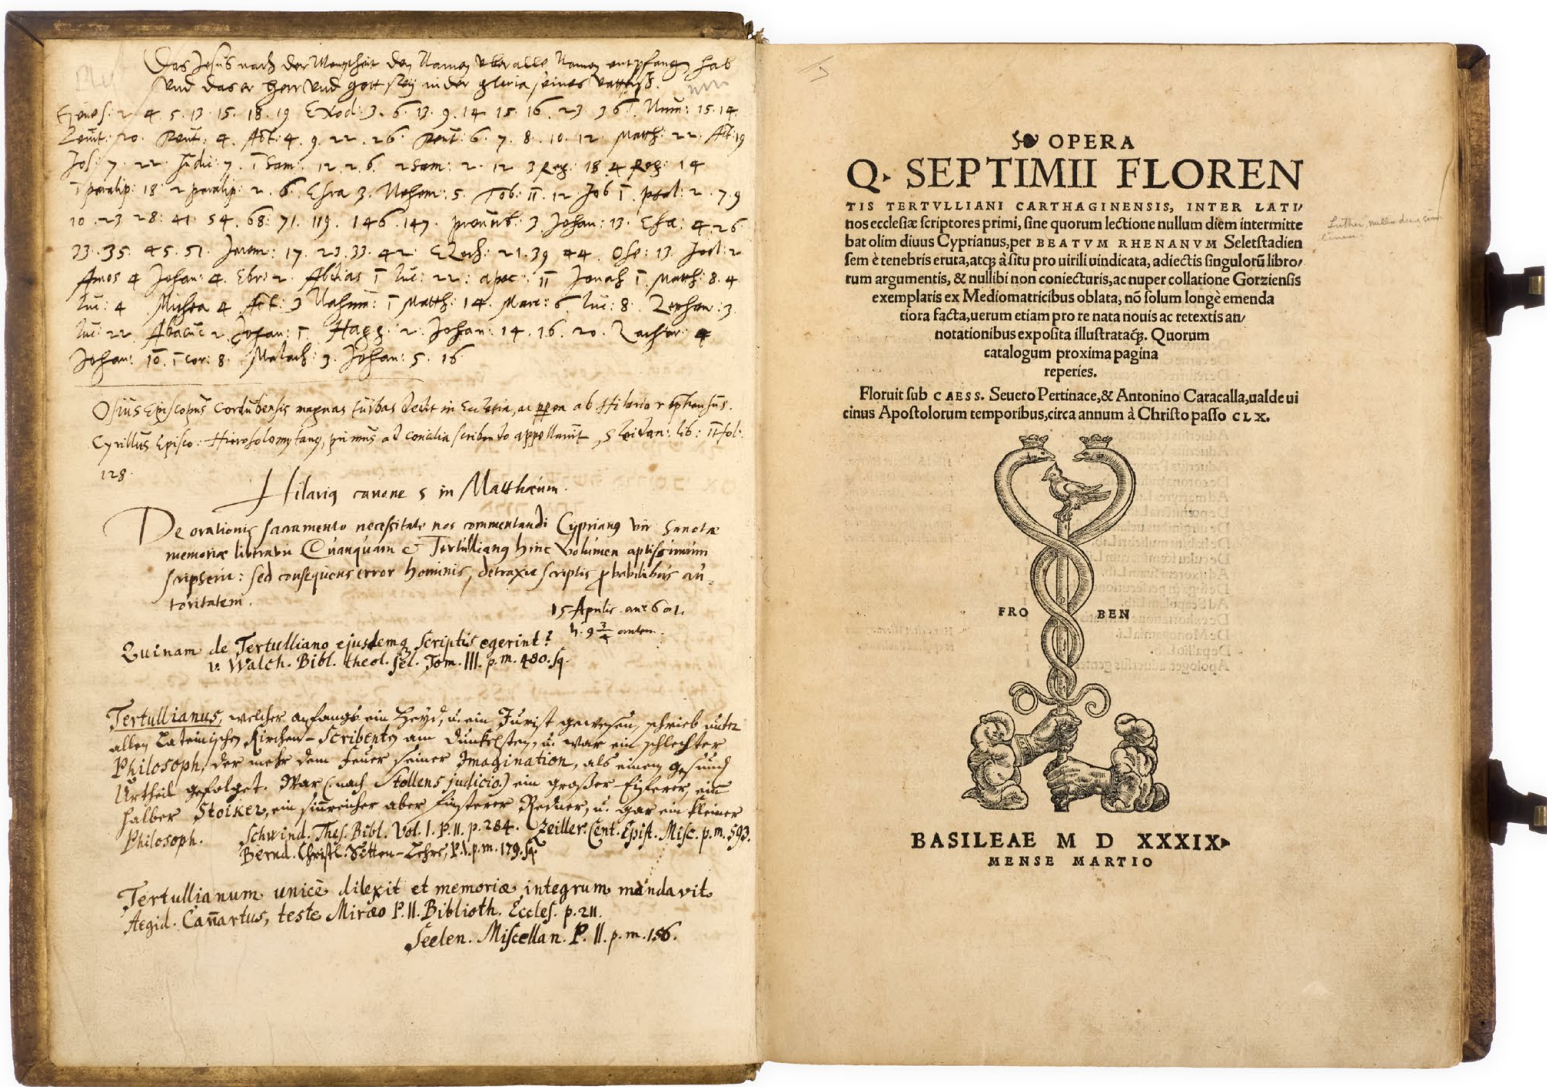 Das Jesus nach der Menschheit den Namen uber alle Namen entpfangen hab
und das er Herr und gott sey in der gloria seines vatters.
Genes: 2 4 5 13 15 18 19 Exod: 3 6 13 9 14 15 16 23 36 Num: 15 14
Levit: 20 Deut: 4 Act: 4 9 22 26 Deut: 6 7 8 10 12 Matth: 22 Act 19
Jos: 7 22 Judic 7 1 Sam: 12 2 6 2 Sam: 2 12 3 Reg: 18 4 Reg: 14
1 paralip: 18 2 paralip: 2 6 Esra 3 Nehem: 5 Tob: 11 12 Job 1 psal: 2 7 9
10 23 28 41 54 68 71 119 146 147 proverb: 3 Johan: 13 Esa: 4 26
33 35 45 51 Jerem: 17 23 33 42 Ezech: 21 39 44 Ose: 13 Joel: 2
Amos 4 Johan: 4 Ebr: 2 Abdias 1 Luc: 22 apoc: 11 Jonah 1 Matth: 8 4
Luc: 4 Michea 4 Act: 3 Nahum: 1 Matth: 14 Marc: 6 Luc: 8 Zephan: 3
Luc: 22 Abacuc 2 Johan: 1 Hagg: 2 Johan: 14 16 20 Zachar: 4
Johan: 10 1 Cor: 8 Malach: 3 Johan: 5 16
Osius Episcopus Cordubensis magnas turbas dedit in Ecclesia, ab Hilario
Cyrillus Episco: Hierosolymitanus, primus ad concilia scribendo Sleidan: lib: 11 fol:
128
Hilarius canone 5 in Matthaeum.
De orationis sacramento necessitate nos commentandi Cyprianus vir Sanctae
memoriae liberavit Quanquam et Tertullianus hinc Volumen aptissimum
scripserit: sed consequens error hominis, detraxit scriptis probabilibus au-
toritatem.
15 Aprilis. an: 601.
h. 9 3/4
Quinam de Tertulliano ejusdemq. Scriptis egerint?
v. Walch. Bibl. theol. sel. Tom. III. p. m. 480. sq.
Tertullianus, welcher anfangs ein Heyd, u. ein Jurist gewesen, schrieb unter
allen Lateinischen Kirchen-Scribenten am dunckelsten, u. war ein schlechter
Philosoph, der mehr dem Feuer seiner Imagination, als einem gesunden
Urtheil gefolget. War (nach Stollens judicio) ein großer Eyferer, ein
halber Stoiker, ein sinnreicher aber finsterer Redner, u. gar ein kleiner
Philosoph. Schwind. Thes. Bibl. Vol. I. P. II. p. 284. Zeiller. Cent. Epist. Misc. p. m. 593.
Bernd. Christl. Sitten-Lehre, P. I. p. m. 179. sq.
Tertullianum unicè dilexit et memoriae integrum mandavit
Aegid. Cañartus, teste Miraeo P. II. Biblioth. Eccles. p. 211.
Seelen. Miscellan. P. II. p. m. 156.
OPERA
Q. SEPTIMII FLOREN
TIS TERTVLLIANI CARTHAGINENSIS, INTER LATI/
nos ecclesiæ scriptores primi, sine quorum lectione nullum diem intermitte
bat olim diuus Cyprianus, per BEATVM RHENANVM Seletstadien
sem è tenebris eruta, atq; à situ pro uirili uindicata, adiectis singulorũ libro/
rum argumentis, & nullibi non coniecturis, ac nuper collatione Gorziensis
exemplaris ex Mediomatricibus oblata, nõ solum longè emenda
tiora facta, uerum etiam pro re nata nouis ac retextis an/
notationibus exposita illustrataq;. Quorum
catalogum proxima pagina
reperies.
Floruit sub CAESS. Seuero Pertinace, & Antonino Caracalla, ualde ui
cinus Apostolorum temporibus, circa annum à Christo passo CLX.
FRO BEN
BASILEAE M D XXXIX
MENSE MARTIO